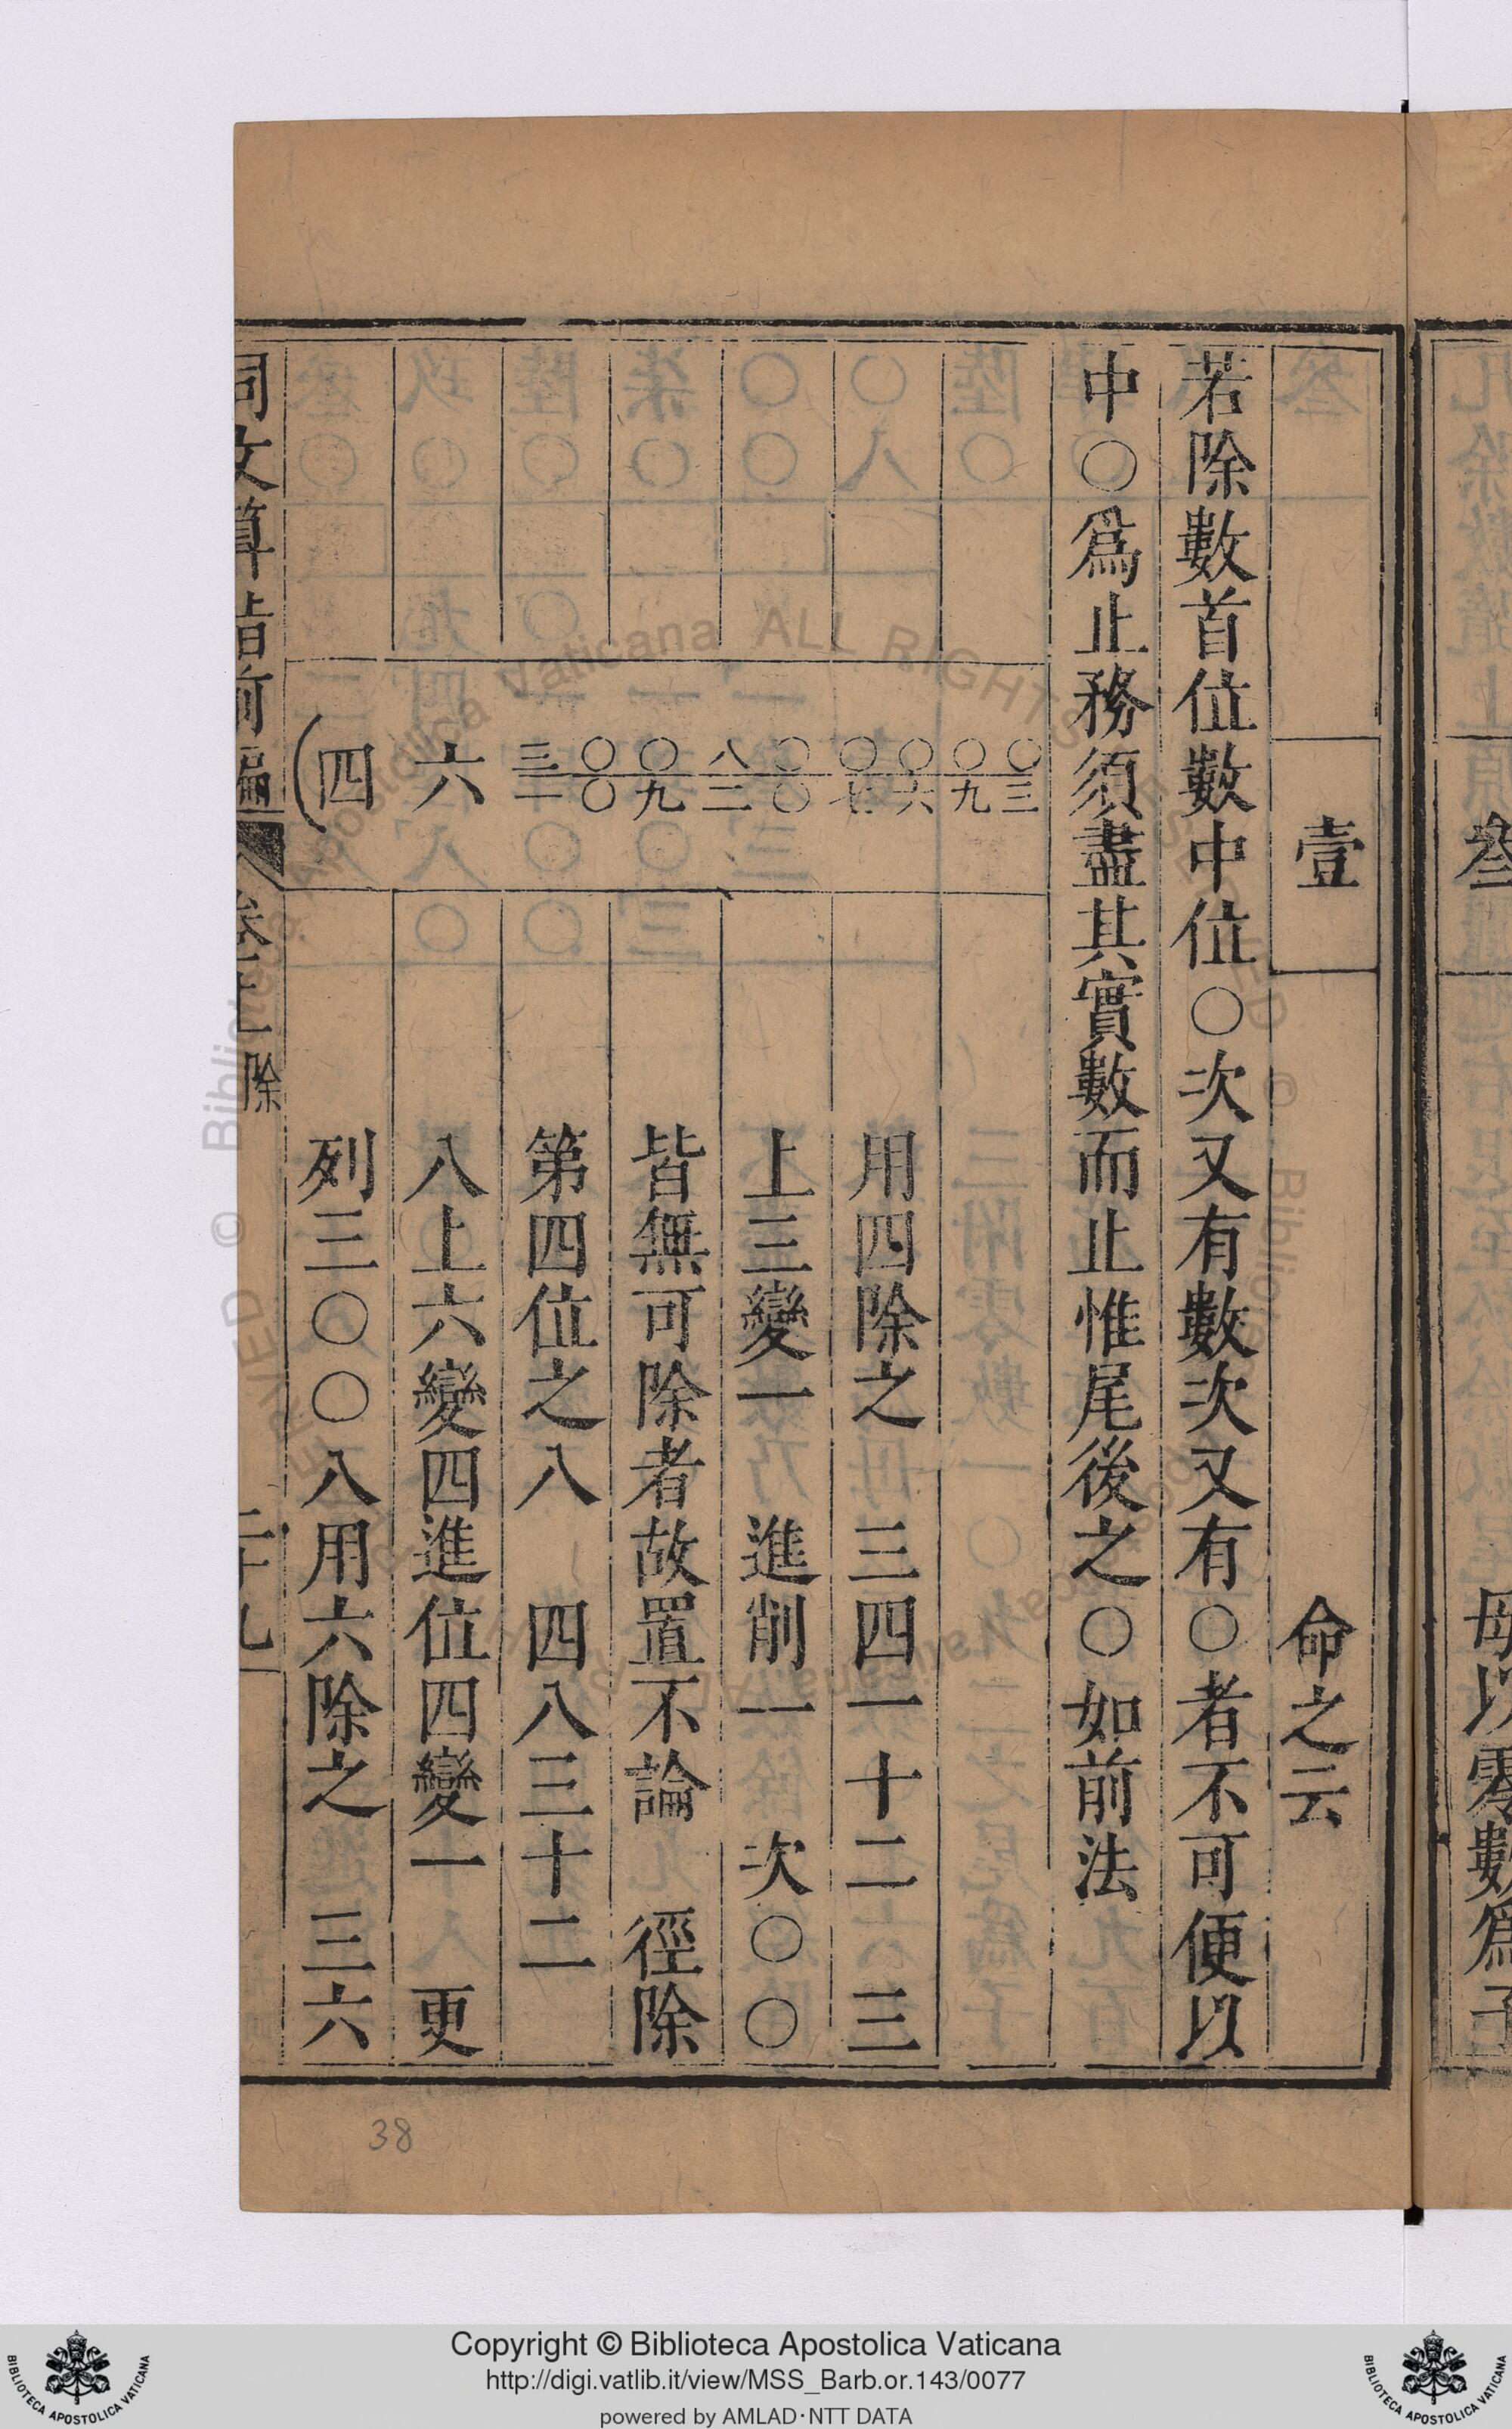 壹 命之云
若除數首位數中位○次又有數次又有○者不可便以
中○爲止務須盡其實數而止惟尾後之○如前法
○○○○○八○○三
三九六七○二九○一
六
四
用四除之 三四一十二 三
上三變一 進削一 次○○
皆無可除者故置不論 徑除
第四位之八 四八三十二
八上六變四進位四變一 更
列三○○八用六除之 三六
同文算指前編
除
二十九
38
Copyright © Biblioteca Apostolica Vaticana
http://digi.vatlib.it/view/MSS_Barb.or.143/0077
powered by AMLAD·NTT DATA
BIBLIOTECA APOSTOLICA VATICANA
BIBLIOTECA APOSTOLICA VATICANA